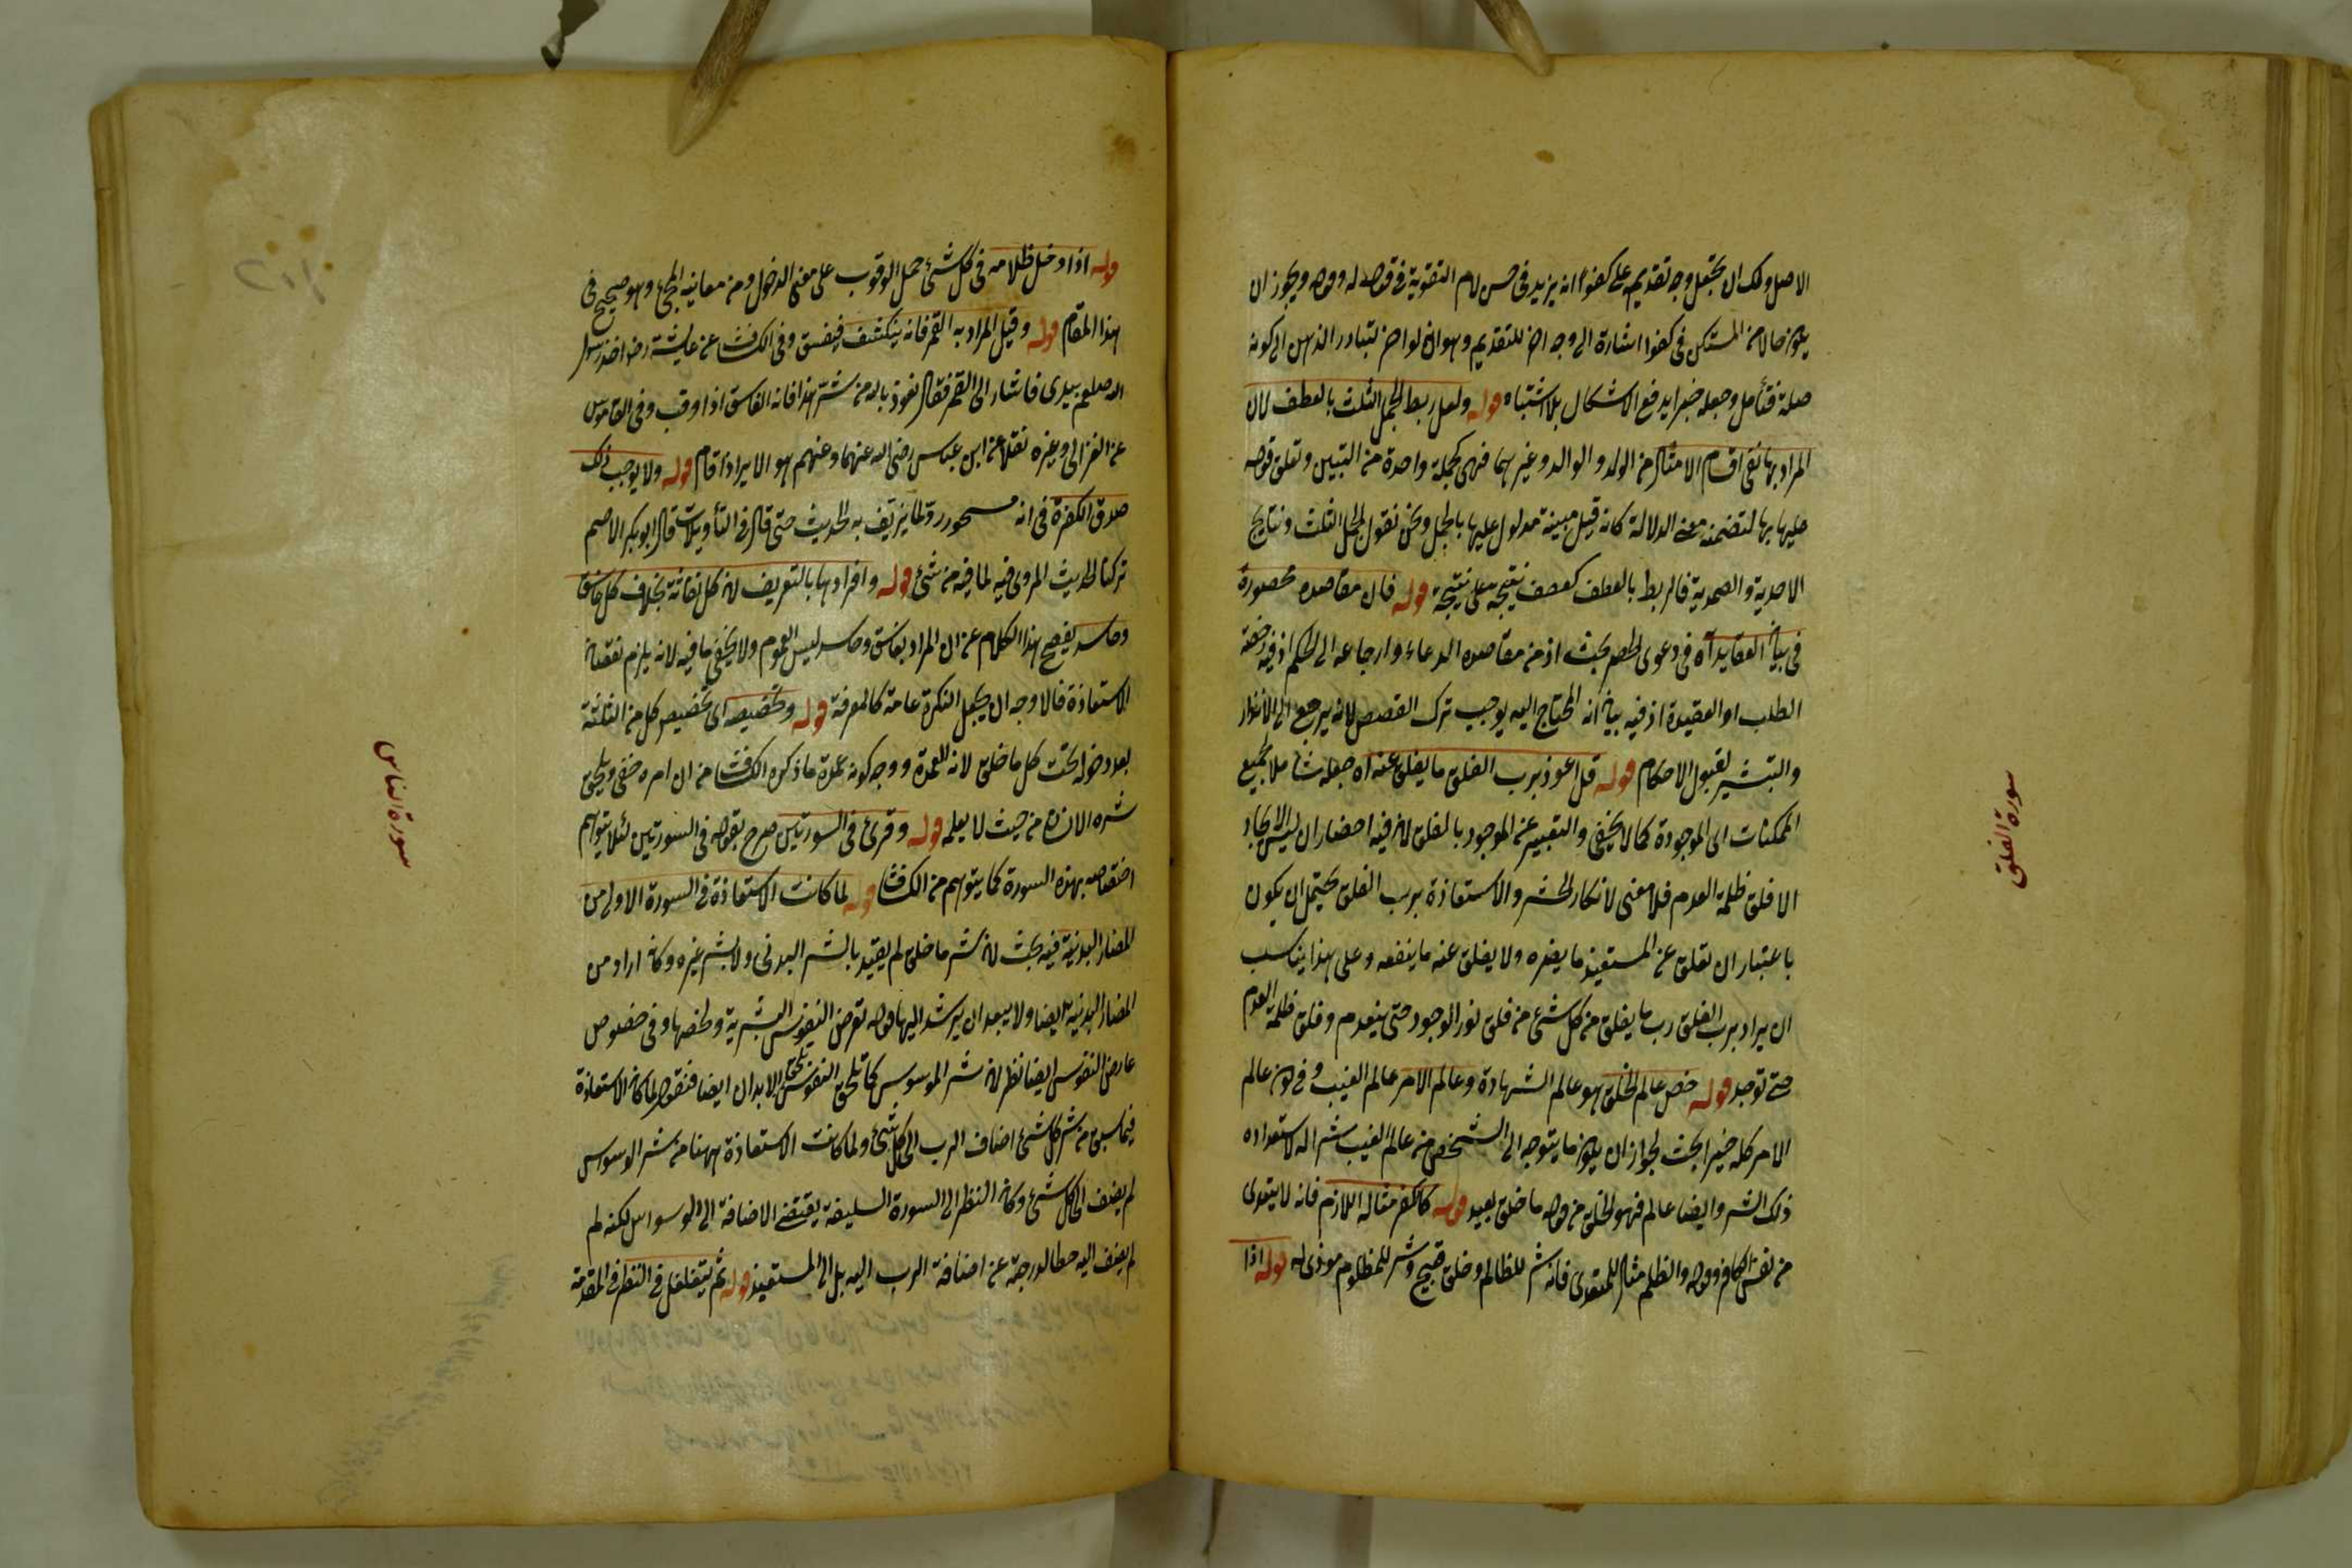 الاصل ولك ان تجعل وجه تقديمه على كفوا انه يزيد في حسن لام التقوية في قوله له وقوله ويجوز ان
يكون حالا من المستكن في كفوا اشارة الى وجه اخر للتقديم وهو انه لو اخر لتبادر الذهن الى كونه
صلة فتأمل وجعله خبرا يدفع الاشكال بلا اشتباه قوله ولعل ربط الجمل الثلث بالعطف لان
المراد بها نفى اقسام الامثال من الولد والوالد وغيرهما فهى كجملة واحدة من التبيين وتعلق قوله
عليها بها لتضمنه معنى الدلالة كانه قيل مبينة مدلول عليها بالجمل ونحن نقول الجمل الثلث ونتايج
الاحدية والصمدية فالربط بالعطف كعطف نتيجة على نتيجة قوله فان مقاصده محصورة
في بيان العقايد اه في دعوى الحصر بحث اذ من مقاصده الدعاء وارجاعه الى الحكم اذ فيه
الطلب او العقيدة اذ فيه بيان انه المحتاج اليه يوجب ترك القصص لانه يرجع الى الانذار
والتبشير لقبول الاحكام قوله قل اعوذ برب الفلق ما يفلق عنه اه جعله شاملا لجميع
الممكنات الى الموجودة كما لا يخفى والتعبير عن الموجود بالفلق لان فيه احضار ان ليس الايجاد
الا فلق ظلمة العدم فلا معنى لانكار الحشر والاستعاذة برب الفلق يحتمل ان يكون
باعتبار ان تفلق عن المستعيذ ما يضره ولا يفلق عنه ما ينفعه وعلى هذا يناسب
ان يراد برب الفلق رب ما يفلق من كل شئ من فلق نور الوجود حتى ينعدم وفلق ظلمة العدم
حتى توجد قوله خص عالم الخلق هو عالم الشهادة وعالم الامر عالم الغيب وفي كون عالم
الامر كله خيرا بحث لجواز ان يكون ما يتوجه الى الشخص من عالم الغيب شرا له لاستعداده
ذلك الشر وايضا عالم فهو الخلق من قوله ما خلق بعيد قوله كالكفر مثاله اللازم فانه لا يتعدى
من نفس الكافر وقوله والظلم مثال للمتعدى فانه شر للظالم وخلق قبيح وشر للمظلوم موذى له قوله اذا
سورة الفلق
قوله اذا دخل ظلامه في كل شئ حمل الوقوب على معنى الدخول ومن معانيه المجئ وهو صحيح في
هذا المقام قوله وقيل المراد به القمر فانه ينكشف فيغسق وفى الكشاف عن عايشة رض اخذ رسول
الله صلعم بيدى فاشار الى القمر فقال نعوذ بالله من شر هذا فانه الغاسق اذا وقب وفى القاموس
عن الغزالى وغيره نقلا عن ابن عباس رضى الله عنهما وعنهم هو الاير اذا قام قوله ولا يوجب ذلك
صدق الكفرة في انه مسحور رد لما يزيف به الحديث حتى قال في التأويلات قال ابو بكر الاصم
تركنا الحديث المروى فيه لما فيه من شئ قوله وافرادها بالتعريف لان كل نفاثة بخلاف كل غاسق
وحاسد يفصح هذا الكلام عن ان المراد بغاسق وحاسد ليس العموم ولا يخفى ما فيه لانه يلزم نقصان
الاستعاذة فالاوجه ان يجعل النكرة عامة كالمعرفة قوله وتخصيصه اى تخصيص كل من الثلثة
بعد دخوله تحت كل ما خلق لانه العمدة ووجه كونه عمدة ما ذكره الكشاف من ان امره خفى ويلحق
شره الانسان من حيث لا يعلم قوله وقرئ في السورتين صرح بقوله في السورتين لئلا يتوهم
اختصاصه بهذه السورة كما يتوهم من الكشاف قوله لما كانت الاستعاذة في السورة الاولى من
المضار البدنية فيه بحث لان شر ما خلق لم يقيد بالشر البدنى ولا بشر غيره وكانه اراد من
المضار البدنية ايضا ولا يبعد ان يرشد اليها قوله تعرض النفوس البشرية وتخصها وفى خصوص
عارض النفوس ايضا نظر لان شر الموسوس كما تلحق النفوس تلحق الابدان ايضا فنقول لما كانت الاستعاذة
فيما سبق من شر كل شئ اضاف الرب الى كل شئ ولما كانت الاستعاذة ههنا من شر الوسواس
لم يضف الى كل شئ وكان النظر الى السورة السابقة يقتضى الاضافة الى الوسواس لكنه لم
لم يضف اليه حطا لدرجته عن اضافة الرب اليه بل الى المستعيذ قوله ثم يتغلغل في النظر في المقدمة
سورة الناس